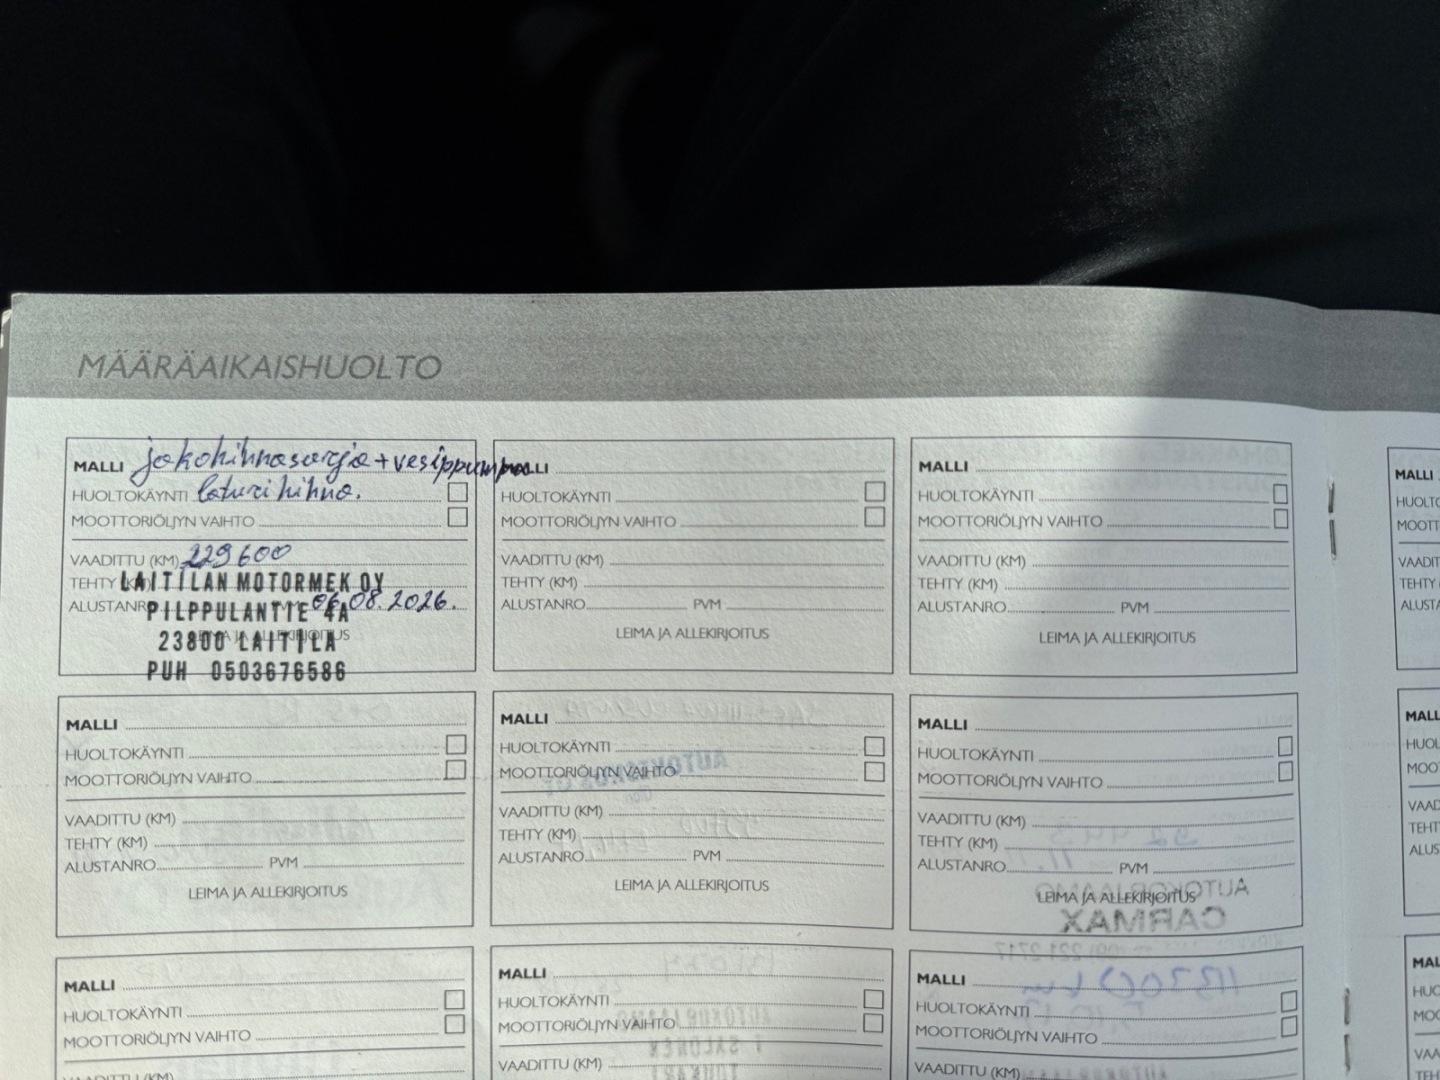 MÄÄRÄAIKAISHUOLTO
MALLI jakohihnasarja + vesippumppu
HUOLTOKÄYNTI laturihihna.
MOOTTORIÖLJYN VAIHTO
VAADITTU (KM) 229600
TEHTY (KM)
LAITILAN MOTORMEK OY
ALUSTANRO 06.08.2026.
PILPPULANTIE 4A
LEIMA JA ALLEKIRJOITUS
23800 LAITILA
PUH 0503676586
MALLI
HUOLTOKÄYNTI
MOOTTORIÖLJYN VAIHTO
VAADITTU (KM)
TEHTY (KM)
ALUSTANRO PVM
LEIMA JA ALLEKIRJOITUS
MALLI
HUOLTOKÄYNTI
MOOTTORIÖLJYN VAIHTO
VAADITTU (KM)
TEHTY (KM)
ALUSTANRO PVM
LEIMA JA ALLEKIRJOITUS
MALLI
HUOLTO
MOOTT
VAADIT
TEHTY
ALUSTA
MALLI
HUOLTOKÄYNTI
MOOTTORIÖLJYN VAIHTO
VAADITTU (KM)
TEHTY (KM)
ALUSTANRO PVM
LEIMA JA ALLEKIRJOITUS
MALLI
HUOLTOKÄYNTI
MOOTTORIÖLJYN VAIHTO
VAADITTU (KM)
TEHTY (KM)
ALUSTANRO PVM
LEIMA JA ALLEKIRJOITUS
MALLI
HUOLTOKÄYNTI
MOOTTORIÖLJYN VAIHTO
VAADITTU (KM)
TEHTY (KM)
ALUSTANRO PVM
LEIMA JA ALLEKIRJOITUS
MALL
HUOL
MOO
VAAD
TEHT
ALUS
MALLI
HUOLTOKÄYNTI
MOOTTORIÖLJYN VAIHTO
VAADITTU (KM)
MALLI
HUOLTOKÄYNTI
MOOTTORIÖLJYN VAIHTO
VAADITTU (KM)
MALLI
HUOLTOKÄYNTI
MOOTTORIÖLJYN VAIHTO
VAADITTU (KM)
MAL
HUO
MOO
VAA
TEH